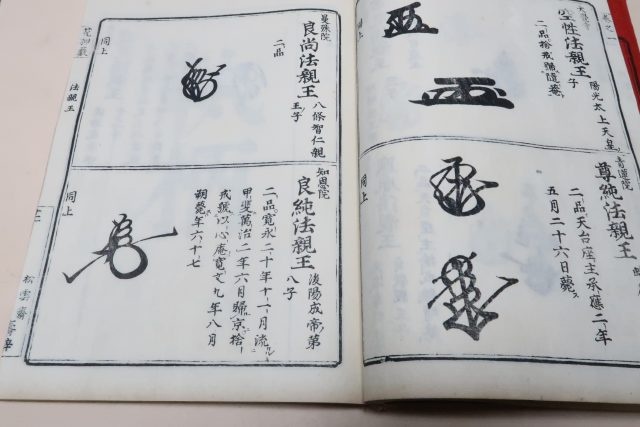 空性法親王
陽光太上天皇
子
二品捨戒號隨庵
尊純法親王
二品天台座主承應二年
五月二十六日薨ス
同上
曼殊院
良尚法親王
八條智仁親
王子
二品
同上
知恩院
良純法親王
後陽成帝第
八子
二品寛永二十年十一月流
甲斐萬治二年六月歸京捨
戒號心庵寛文九年八月
薨年六十七
同上
法親王
松雲齋